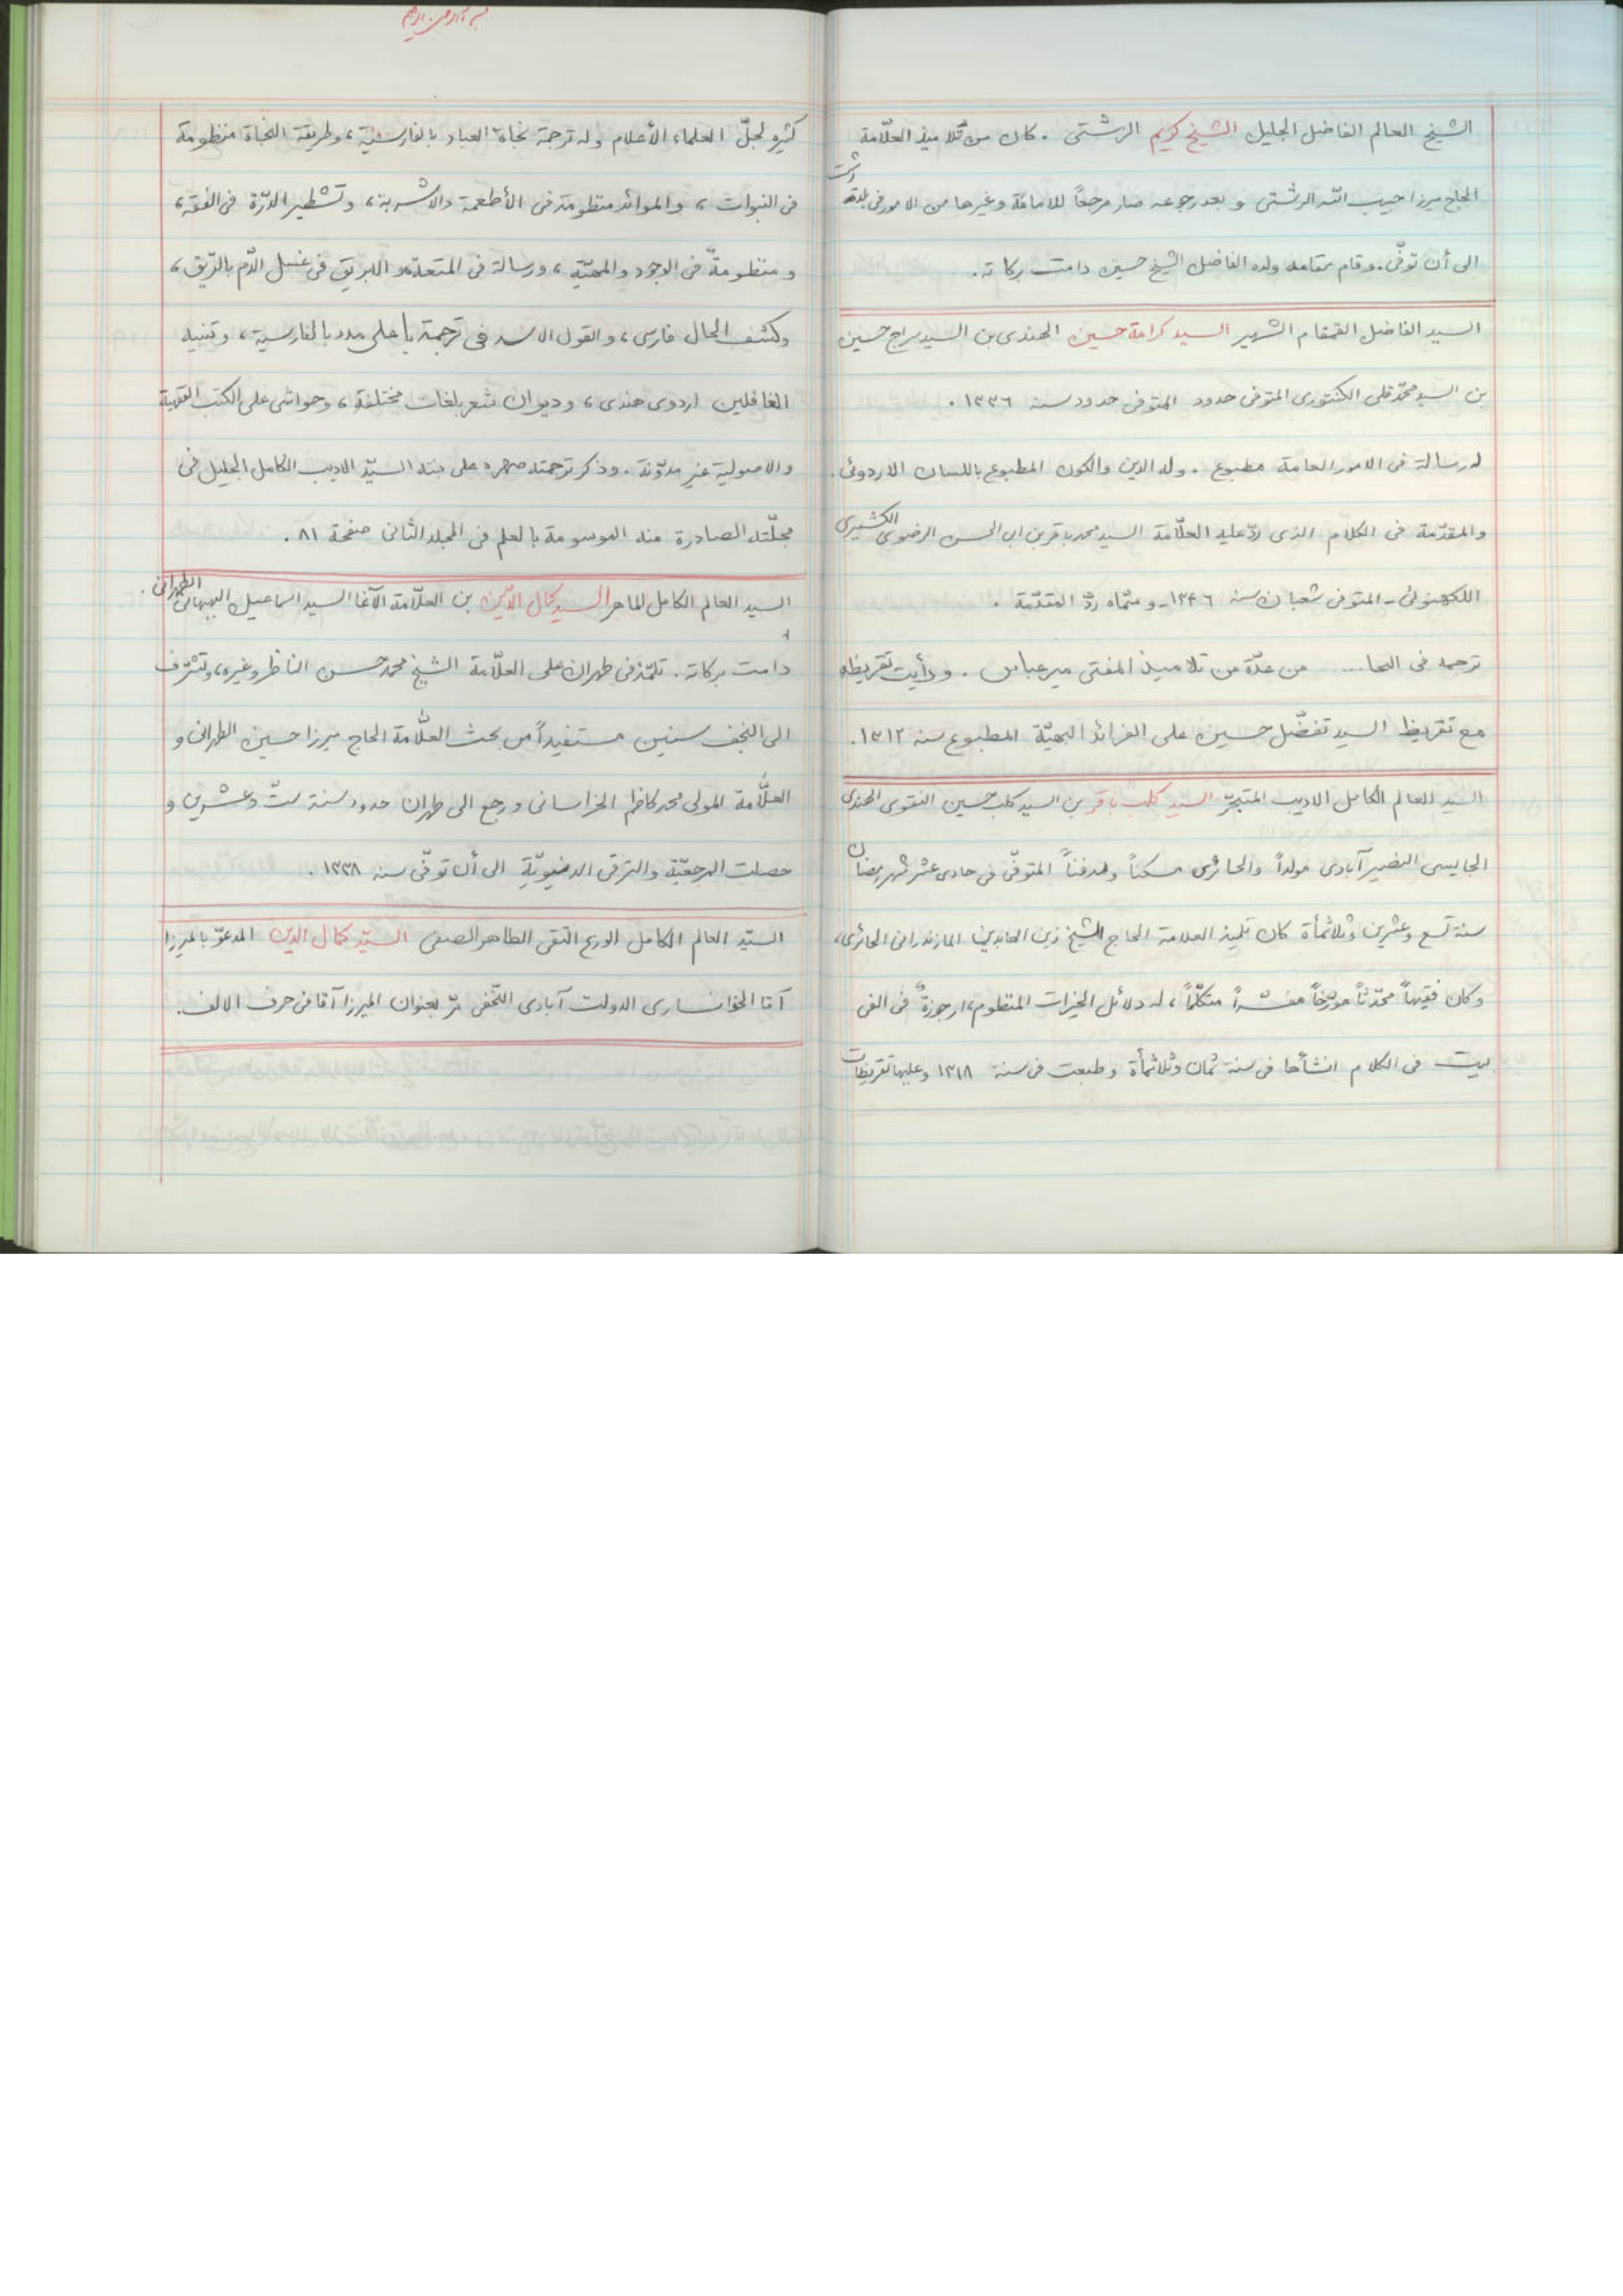 الشيخ العالم الفاضل الجليل الشيخ كريم الرشتى . كان من تلاميذ العلّامة
الحاج ميرزا حبيب الله الرشتى و بعد رجوعه صار مرجعاً للامامة وغيرها من الامور فى بلدة رشت
الى أن توفّى . وقام مقامه ولده الفاضل الشيخ حسين دامت بركاته .
السيد الفاضل القمقام الشهير السيد كرامة حسين الهندى بن السيد سراج حسين
بن السيد محمّد قلى الكنتورى المتوفى حدود المتوفى حدود سنه ١٣٣٦ .
له رسالة فى الامور العامة مطبوع . وله الدين والكون المطبوع باللسان الاردوئى .
والمقدّمة فى الكلام الذى ردّ عليه العلّامة السيد محمد باقر بن ابى الحسن الرضوى الكشميرى
اللكهنوئى - المتوفى شعبان سنه ١٣٤٦ - و سمّاه ردّ المقدّمة .
ترجمه فى .... من عدّة من تلاميذ المفتى مير عباس . ورأيت تقريظه
مع تقريظ السيد تفضّل حسين على الفرائد البهيّة المطبوع سنه ١٣١٢ .
السيد العالم الكامل الاديب المتبحّر السيد كلب باقر بن السيد كلب حسين النقوى الهندى
الجايسى النصير آبادى مولداً والحائرى مسكناً ومدفناً المتوفّى فى حادى عشر شهر رمضان
سنة تسع وعشرين وثلاثمأة كان تلميذ العلامة الحاج الشيخ زين العابدين المازندرانى الحائرى،
وكان فقيهاً محدّثاً مورّخاً مفسّراً متكلّماً ، له دلائل الخيرات المنظوم، ارجوزة فى الفى
بيت فى الكلام انشأها فى سنة ثمان وثلاثمأة وطبعت فى سنة ١٣١٨ وعليها تقريظات
كثيره لجلّ العلماء الأعلام وله ترجمة نجاة العباد بالفارسيّة ، وطريقة النجاة منظومة
فى النبوات ، والموائد منظومة فى الأطعمة والاشربة ، وتشطير الدرّة فى الفقه ،
و منظومةٌ فى الوجود والمهيّة ، ورسالة فى المتعة، و الابريق فى غسل الدّم بالرّيق ،
وكشف الحال فارسى ، والقول الاسد فى ترجمة يا على مدد بالفارسية ، وتنبيه
الغافلين اردوى هندى ، وديوان شعر بلغات مختلفة ، وحواشى على الكتب الفقهية
والاصولية غير مدوّنة . وذكر ترجمته صهره على بنته السيّد الاديب الكامل الجليل فى
مجلّته الصادرة منه الموسومة بالعلم فى المجلد الثانى صفحة ٨١ .
السيد العالم الكامل الماهر السيد كمال الدّين بن العلّامة الآغا السيد اسماعيل البهبهانى الطهرانى .
دامت بركاته . تلمّذ فى طهران على العلّامة الشيخ محمد حسن الناظر وغيره، وتشرّف
الى النجف سنين مستفيداً من بحث العلّامة الحاج ميرزا حسين الطهرانى و
العلّامة المولى محمد كاظم الخراسانى ورجع الى طهران حدود سنة ستّ وعشرين و
حصلت المرجعيّة والترقى الدنيويّة الى أن توفّى سنه ١٣٣٨ .
السيّد العالم الكامل الورع التقى الطاهر الصفى السيّد كمال الدين المدعوّ بالميرزا
آقا الخوانسارى الدولت آبادى النجفى مرّ بعنوان الميرزا آقا فى حرف الالف .